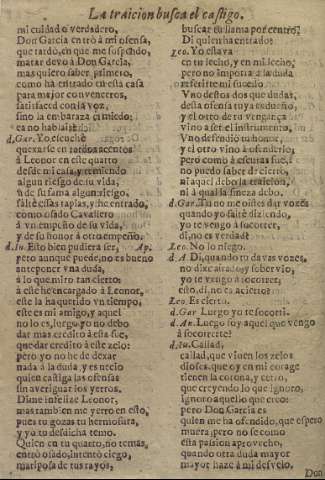 La traicion busca el castigo.
mi cuidado verdadero,
Don Garcia entrò à mi ofensa,
que tardo, en que me suspendo,
matar devo à Don Garcia,
mas quiero saber primero,
como ha entrado en esta casa
para mejor convenceros,
satisfaced con la voz,
sino la embaraza el miedo;
ea no hablais?
d.Gar. Yo escuchè
quexarse en
à Leonor en este quarto
desde mi casa, y temiendo
algun riesgo de su vida,
ù de su fama algun riesgo,
saltè essas tapias, y he entrado,
como osado Cavallero
à vn empeño de su vida,
y de su honor à otro empeño.
d.In. Esto bien pudiera ser, Ap.
pero aunque puede, no es bueno
anteponer vna duda,
à lo que miro tan cierto:
à este he encargado à Leonor,
este la ha querido vn tiempo,
este es mi amigo, y aquel
no lo es, luego yo no debo
dar mas credito à essa fue,
que dar credito à este zelo:
pero yo no he de dexar
nada à la duda, y es necio
quien castiga las ofensas
sin averiguar los yerros.
Dime infelize Leonor,
mas tambien me yerro en esto,
pues tu gozas tu hermosura,
y yo tu desdicha temo.
Quien en tu quarto, no temàs,
entrò osado, intentò ciego,
mariposa de tus rayos,
buscar su llama por centro?
Di quien ha entrado?
Leo. Yo estava
en tu lecho, y en mi lecho,
pero no importa à la duda
referirte mi sucesso.
Vno de los dos que miras,
desta ofensa tuya es dueño,
y el otro de tu vengança
vino à ser el instrumento,
Vno defendiò tu honor,
y el otro vino à ofenderlo,
pero como à escuras fue,
no puedo saber de cierto,
ni aquel de la traicion,
ni à qual la fineza debo.
d.Gar. Tu no me oistes dar vozes
quando yo saltè diziendo,
yo te vengo à socorrer,
di, no es verdad?
Leo. No lo niego.
d.A. Di, quando tu davas vozes,
no dixe airado, y sobervio,
yo te vengo à socorrer,
esto, di, no es acierto?
Leo. Es cierto.
d.Gar. Luego yo te socorri.
d.An. Luego soy aquel que vengo
à socorrerte?
d.Iu. Callad,
callad, que viven los zelos
dioses, que oy en mi corage
tienen la corona, y cetro,
que creyendo lo que ignoro,
ignoro aquello que creo:
pero Don Garcia es
quien me ha ofendido, que espero
muera; pero no se como
esta passion aprovecho,
quando otra duda mayor
mayor haze à mi desvelo.
Don